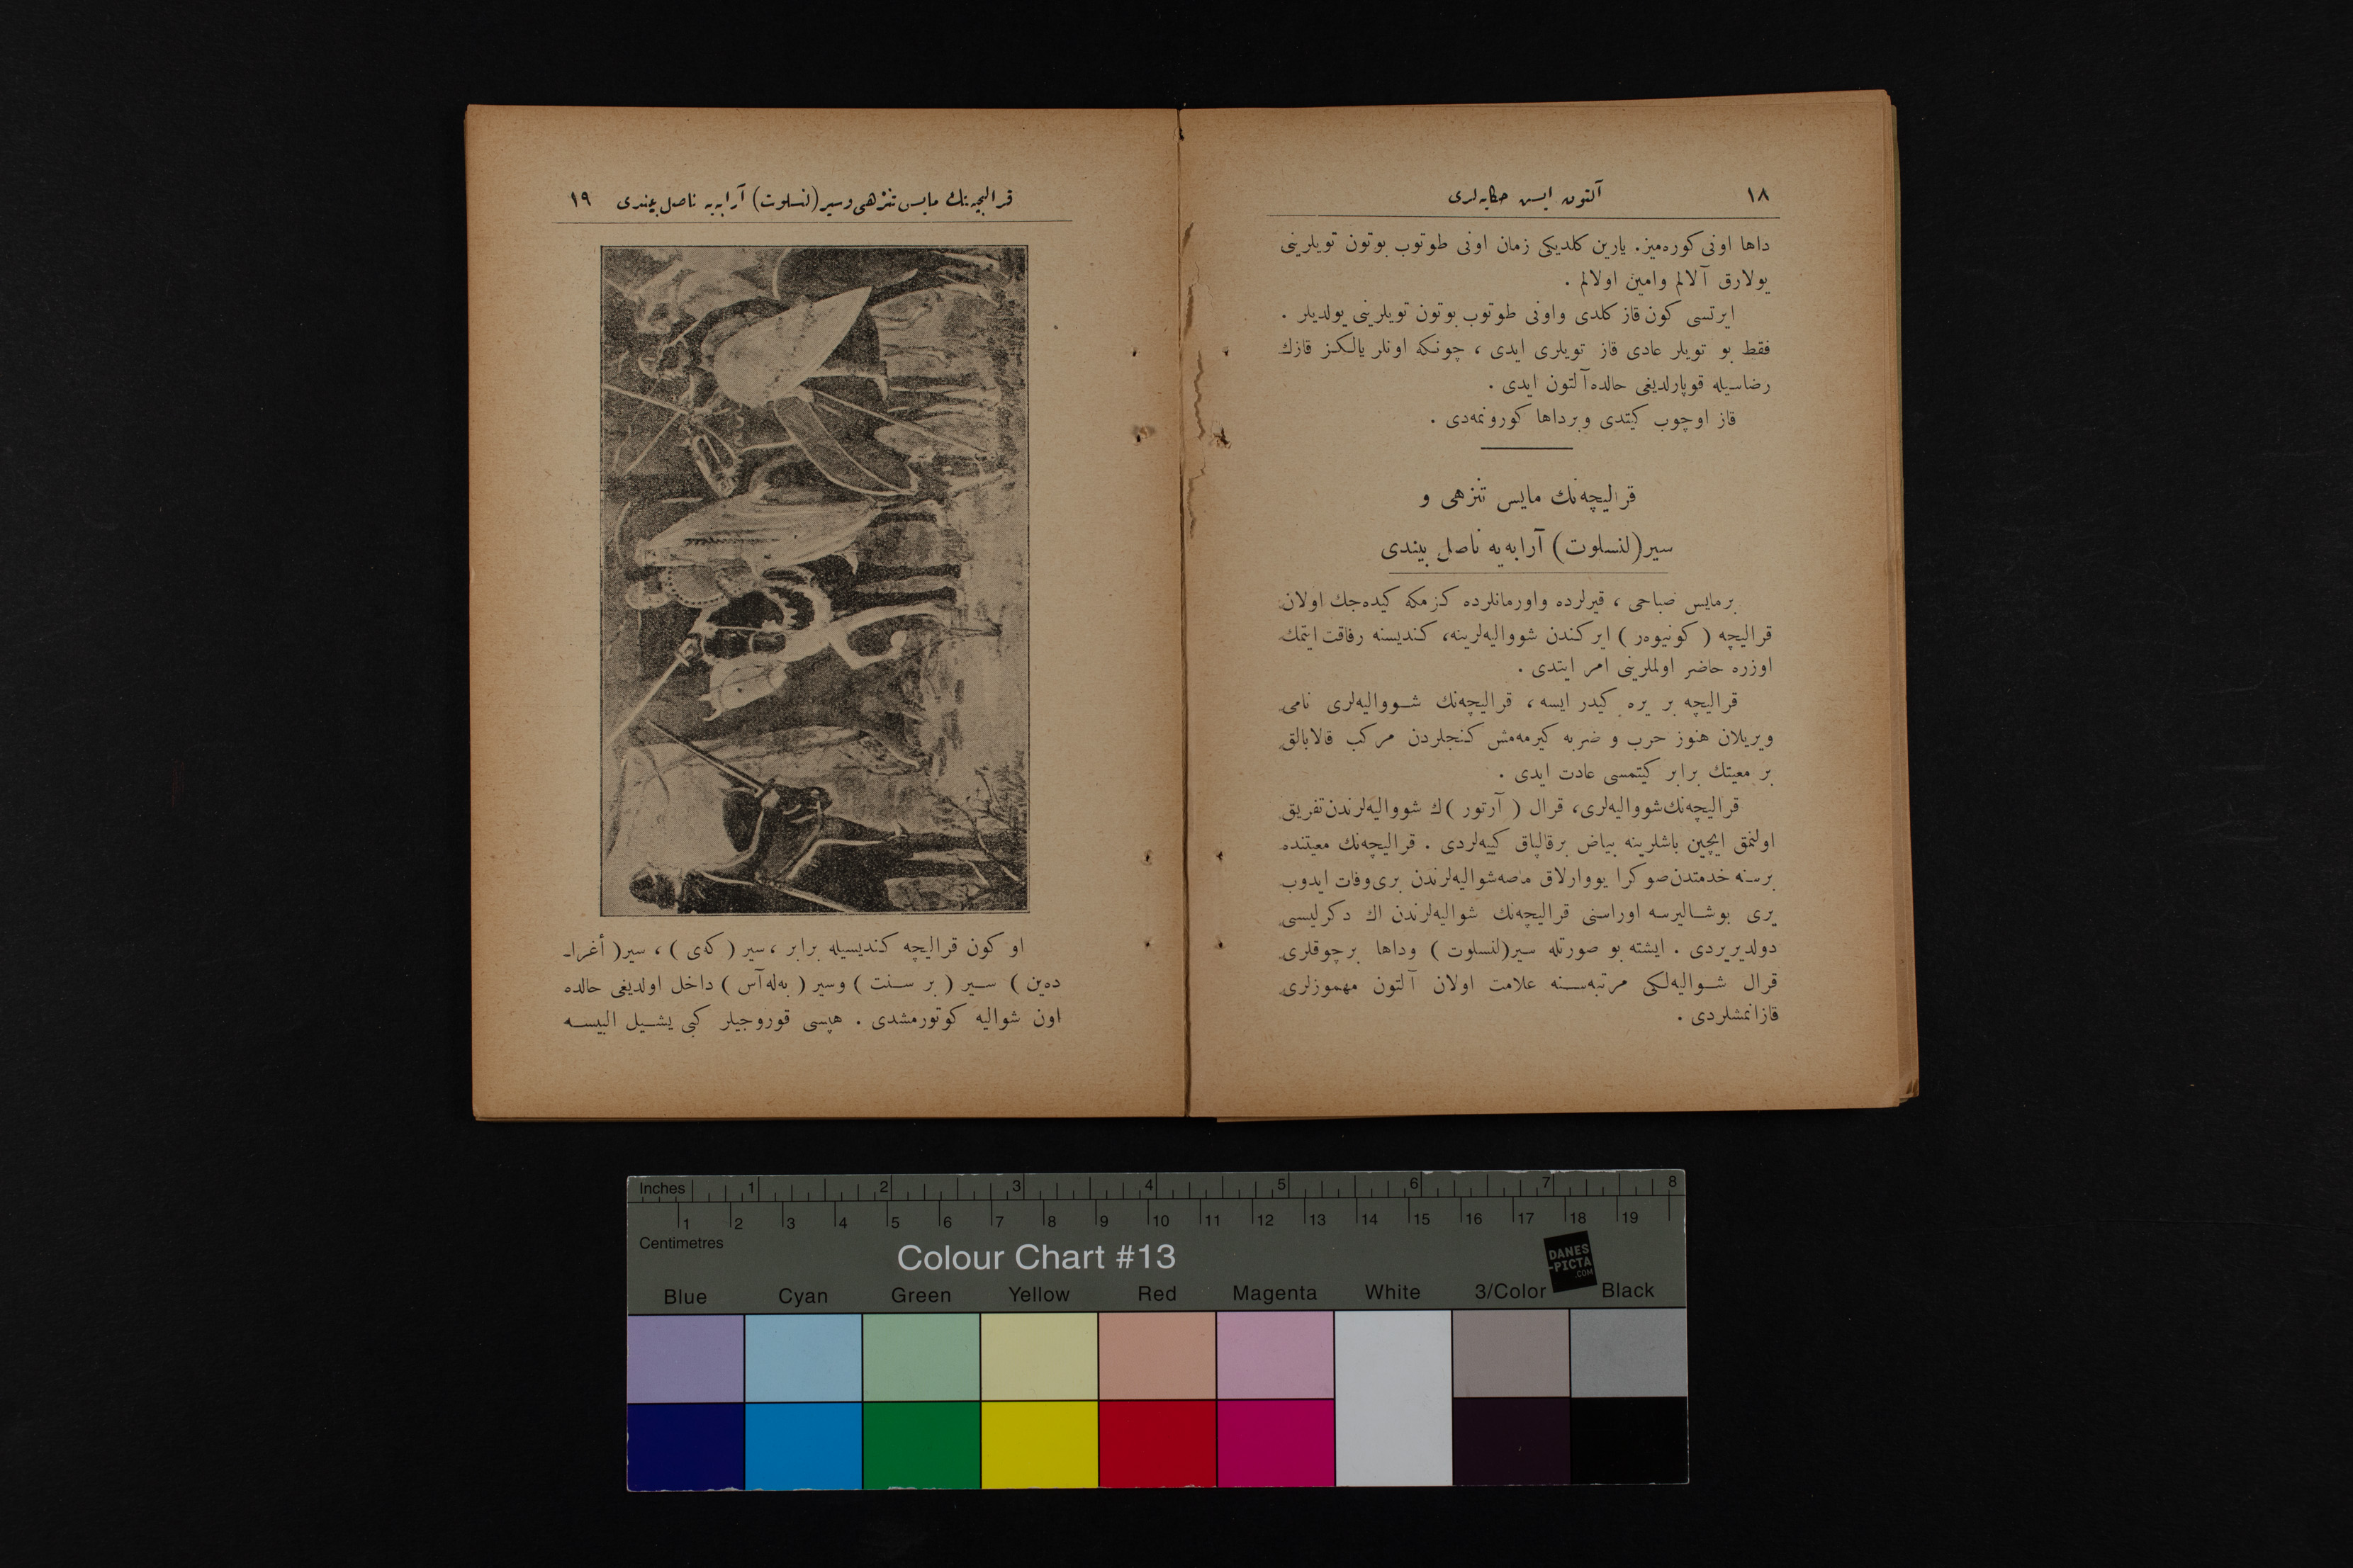 ١٨
آلتون ایس حکایه‌لری
داها اونی کوره‌میز. یارین کلدیکی زمان اونی طوتوب بوتون تویلرینی
یولارق آلالم وامین اولالم .
ایرتسی کون قاز کلدی واونی طوتوب بوتون تویلرینی یولدیلر .
فقط بو تویلر عادی قاز تویلری ایدی ، چونکه اونلر یالکز قازك
رضاسیله قوپارلدیغی حالده آلتون ایدی .
قاز اوچوب کیتدی وبرداها کورونمه‌دی .
قرالیچه‌نك مایس تنزهی و
سیر (لنسلوت) آرابه‌یه ناصل بیندی
برمایس صباحی ، قیرلرده واورمانلرده کزمکه کیده‌جك اولان
قرالیچه ( کونیوه‌ر ) ایرکندن شووالیه‌لرینه، کندیسنه رفاقت ایتمك
اوزره حاضر اولملرینی امر ایتدی .
قرالیچه بر یره کیدر ایسه ، قرالیچه‌نك شووالیه‌لری نامی
ویریلان هنوز حرب و ضربه کیرمه‌مش کنجلردن مرکب قالابالق
بر معیتك برابر کیتمسی عادت ایدی .
قرالیچه‌نك شووالیه‌لری، قرال ( آرتور )ك شووالیه‌لرندن تفریق
اولنمق ایچین باشلرینه بیاض برقالپاق کییه‌لردی . قرالیچه‌نك معیتنده
برسنه خدمتدن صوکرا یووارلاق ماصه شوالیه‌لرندن بری وفات ایدوب
یری بوشالیرسه اوراسنی قرالیچه‌نك شوالیه‌لرندن اك دکرلیسی
دولدیریردی . ایشته بو صورتله سیر(لنسلوت ) وداها برچوقلری
قرال شوالیه‌لکی مرتبه‌سنه علامت اولان آلتون مهموزلری
قازانمشلردی .
قرالیچه‌نك مایس تنزهی و سیر (لنسلوت) آرابه‌یه ناصل بیندی
١٩
او کون قرالیچه کندیسیله برابر ، سیر ( که‌ی ) ، سیر( أغرا-
ده‌ین ) سیر ( بر سنت ) وسیر ( به‌له‌آس ) داخل اولدیغی حالده
اون شوالیه کوتورمشدی . هپسی قوروجیلر کبی یشیل البیسه
Inches 1 2 3 4 5 6 7 8
1 2 3 4 5 6 7 8 9 10 11 12 13 14 15 16 17 18 19
Centimetres
Colour Chart #13
DANES
-PICTA
.COM
Blue Cyan Green Yellow Red Magenta White 3/Color Black